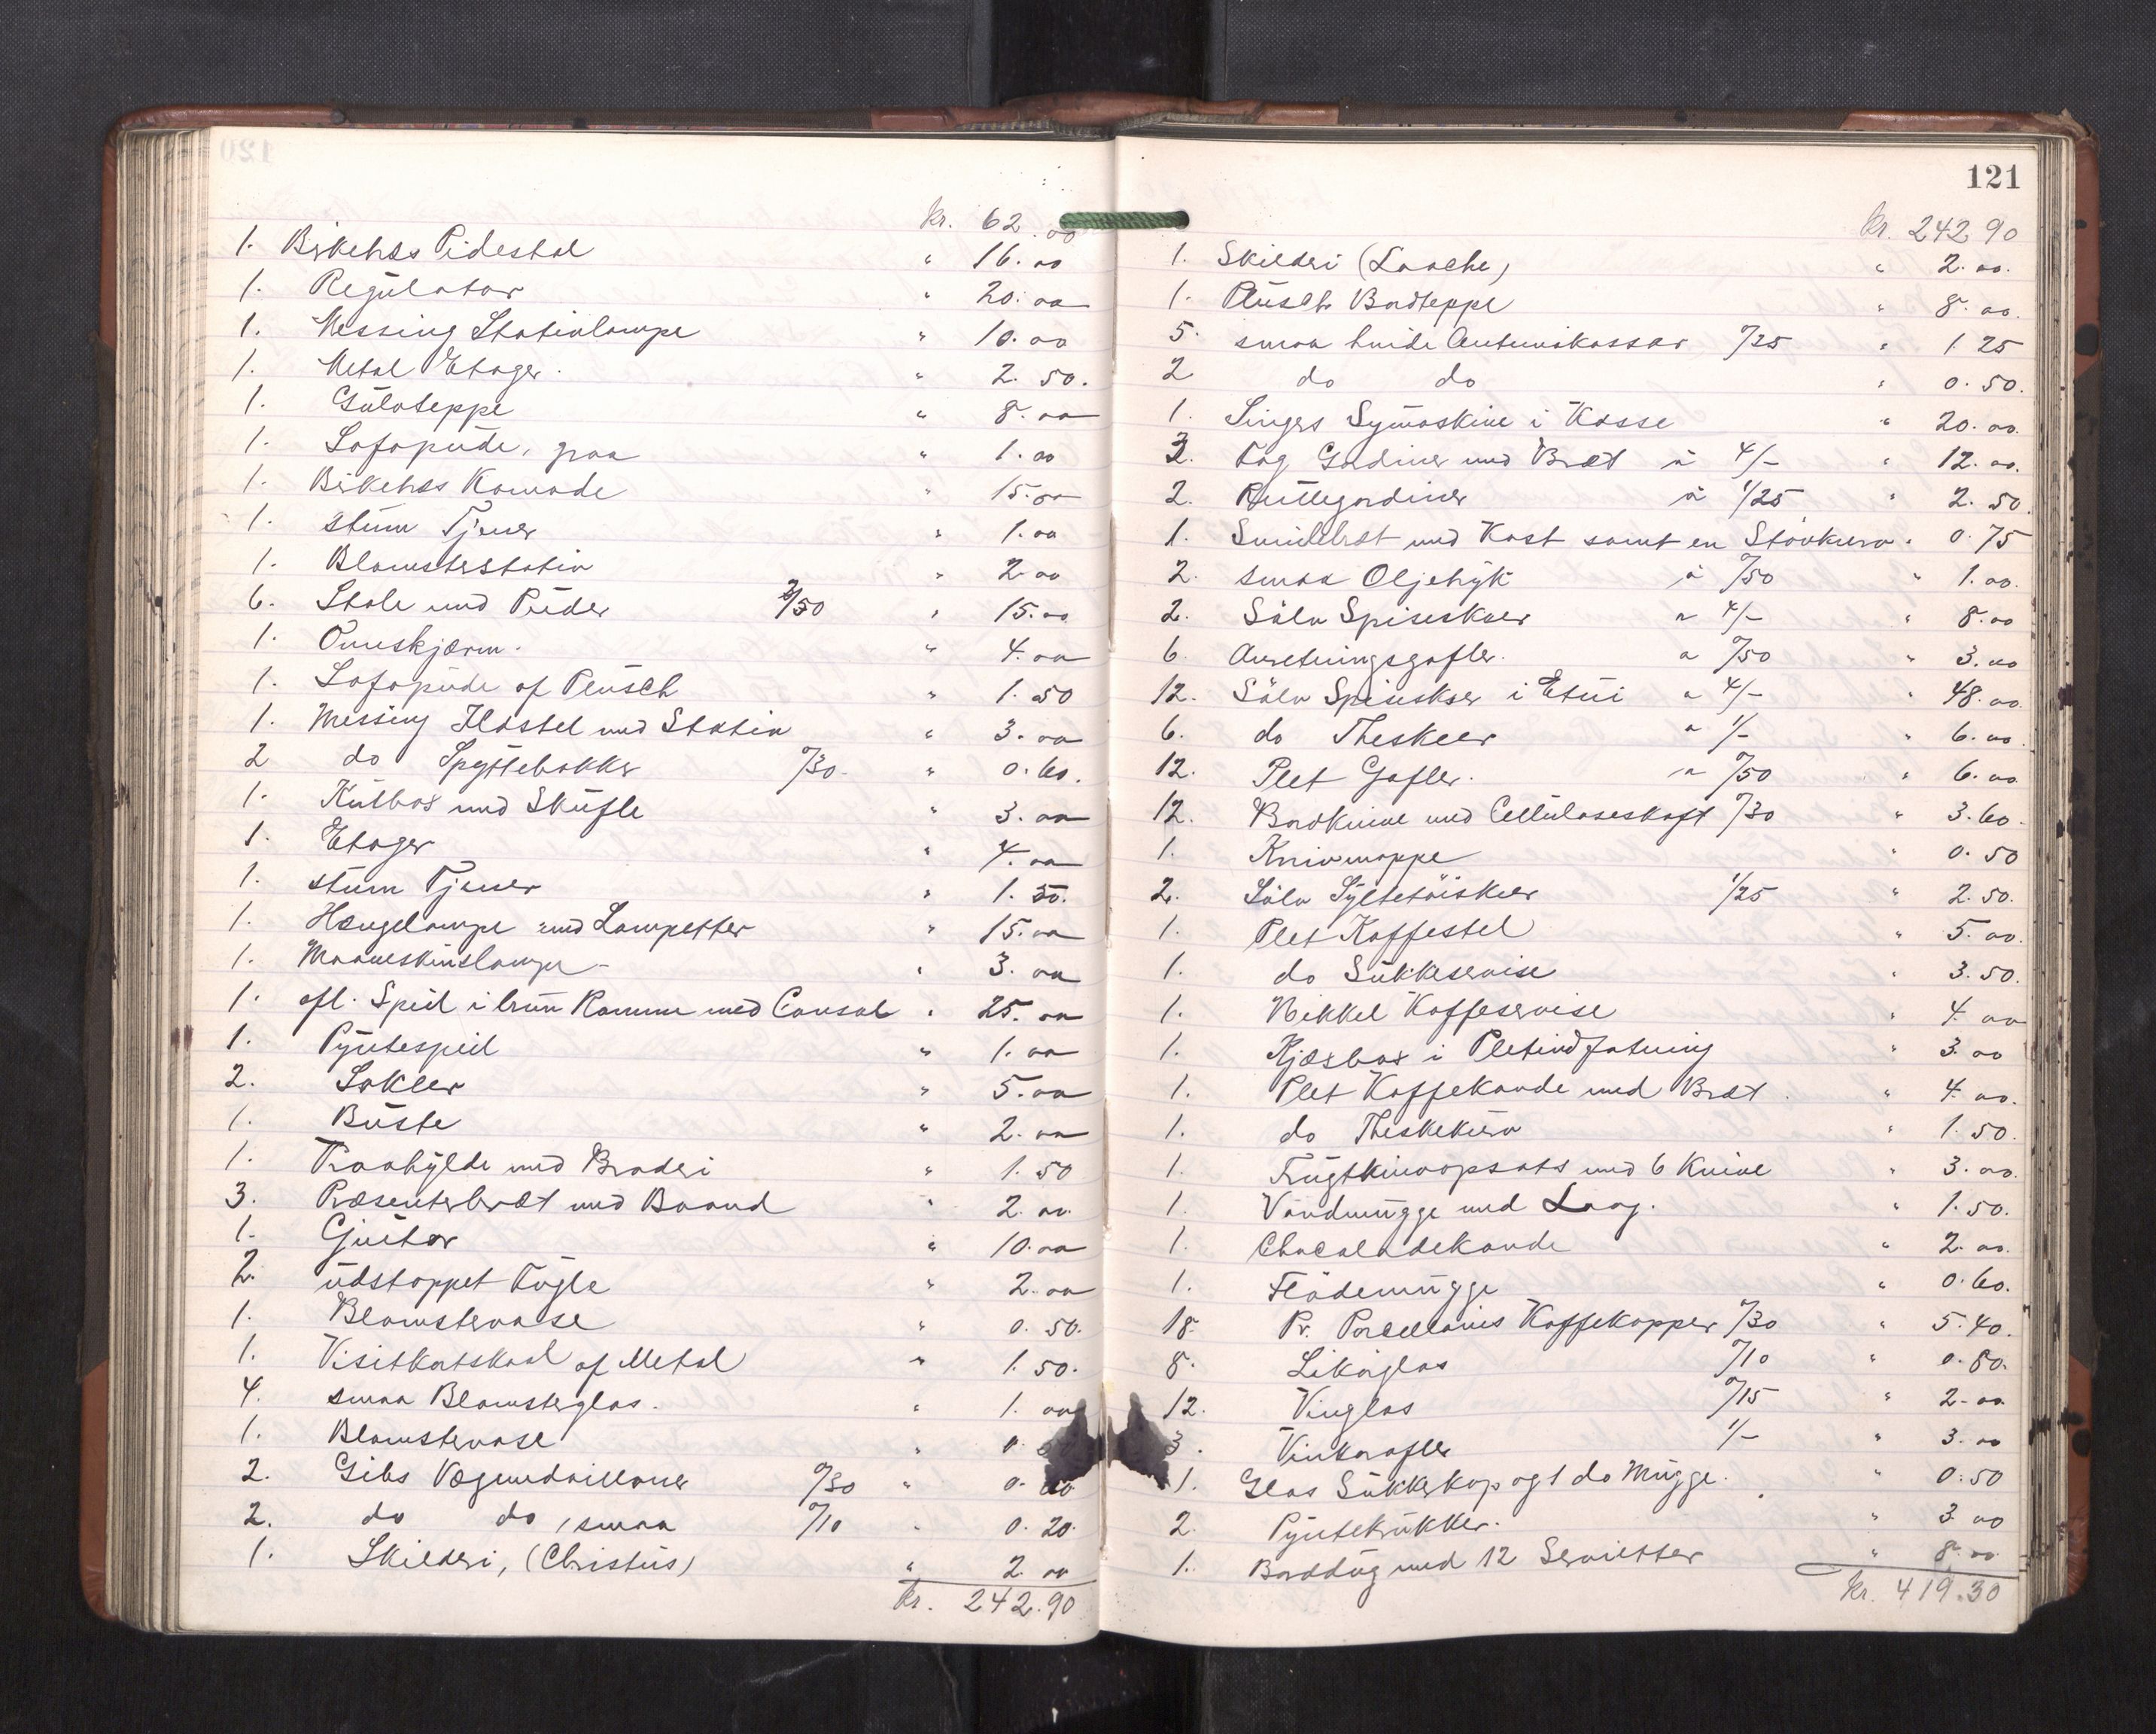 kr. 62.00
1. Birketræs Pidestal " 16.00
1. Regulator " 20.00
1. Messing Stativlampe " 10.00
1. Metal Etager. " 2.50.
1. Gulvteppe " 8.00
1. Sofapude, graa " 1.00
1. Birketræs Komode " 15.00
1. stum Tjener " 1.00
1. Blomsterstativ " 2.00
6. Stole med Puder 2/50 " 15.00
1. Ovnskjærm. " 4.00
1. Sofapude af Plusch " 1.50
1. Messing Ildstel med Stativ " 3.00
2 do Spyttebakker 0/30. " 0.60.
1. Kulbox med Skufle " 3.00
1. Etager " 4.00
1. stum Tjener " 1.50.
1. Hængelampe med Lampetter " 15.00
1. Maaneskinslampe " 3.00
1. ofl. Speil i brun Ramme med Consol " 25.00
1. Pyntespeil " 1.00
2. Sokler " 5.00
1. Buste " 2.00
1. Traahylde med Broderi " 1.50
3. Præsenterbræt med Baand " 2.00
1. Guitar " 10.00
2. udstoppet Fugle " 2.00
1. Blomstervase " 0.50.
1. Visitkortskaal af Metal " 1.50.
4. smaa Blomsterglas. " 1.00
1. Blomstervase " 0.
2. Gibs Vægmedailloner 0/30 " 0.60
2. do do, smaa 0/10 " 0.20.
1. Skilderi, (Christus) " 2.00
kr. 242.90
121
kr. 242.90
1. Skilderi (Laache) " 2.00.
1. Plusch Bordteppe " 8.00.
5. smaa hvide 0/25 " 1.25
2 do do " 0.50.
1. Singers Symaskine i Kasse " 20.00.
3. Fag Gardiner med Bræt à 4/- " 12.00.
2. Rullegardiner à 1/25 " 2.50.
1. Smulebræt med Kost samt en Støvkurv " 0.75
2. smaa Oljetryk à 0/50 " 1.00.
2. Sølv Spiseskeer a 4/- " 8.00
6. Anretningsgafler. a 0/50 " 3.00
12. Sølv Spiseskeer i Etui a 4/- " 48.00.
6. do Theskeer a 1/- " 6.00.
12. Plet Gafler. a 0/50 " 6.00
12. Bordknive med Celluloseskaft 0/30 " 3.60.
1. Knivmappe " 0.50
2. Sølv Syltetøiskeer 1/25 " 2.50.
1. Plet Kaffestel " 5.00.
1. do Sukkerservise " 3.50.
1. Nikkel Kaffeservise " 4.00
1. Kjæxbox i Pletindfatning " 3.00
1. Plet Kaffekande med Bræt. " 4.00.
1. do Theskekurv " 1.50.
1. Frugtknivopsats med 6 Knive " 3.00.
1. Vandmugge med Laag. " 1.50.
1. Chocoladekande " 2.00.
1. Flødemugge " 0.60.
18. Pr. Porcellains Kaffekopper 0/30 " 5.40.
8. Likørglas 0/10 " 0.80.
12. Vinglas 0/15 " 2.00
3. Vinkarafler 1/- " 3.00
1. Glas Sukkerkop og 1 do Mugge. " 0.50
2. Pyntekrukker. " 3.00
1. Borddug med 12 Servietter " 8.00
kr. 419.30